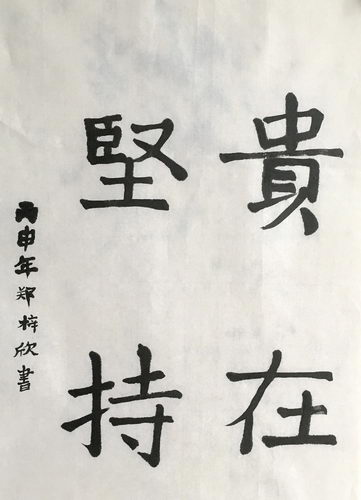 貴在
堅持
丙申年郑梓欣書